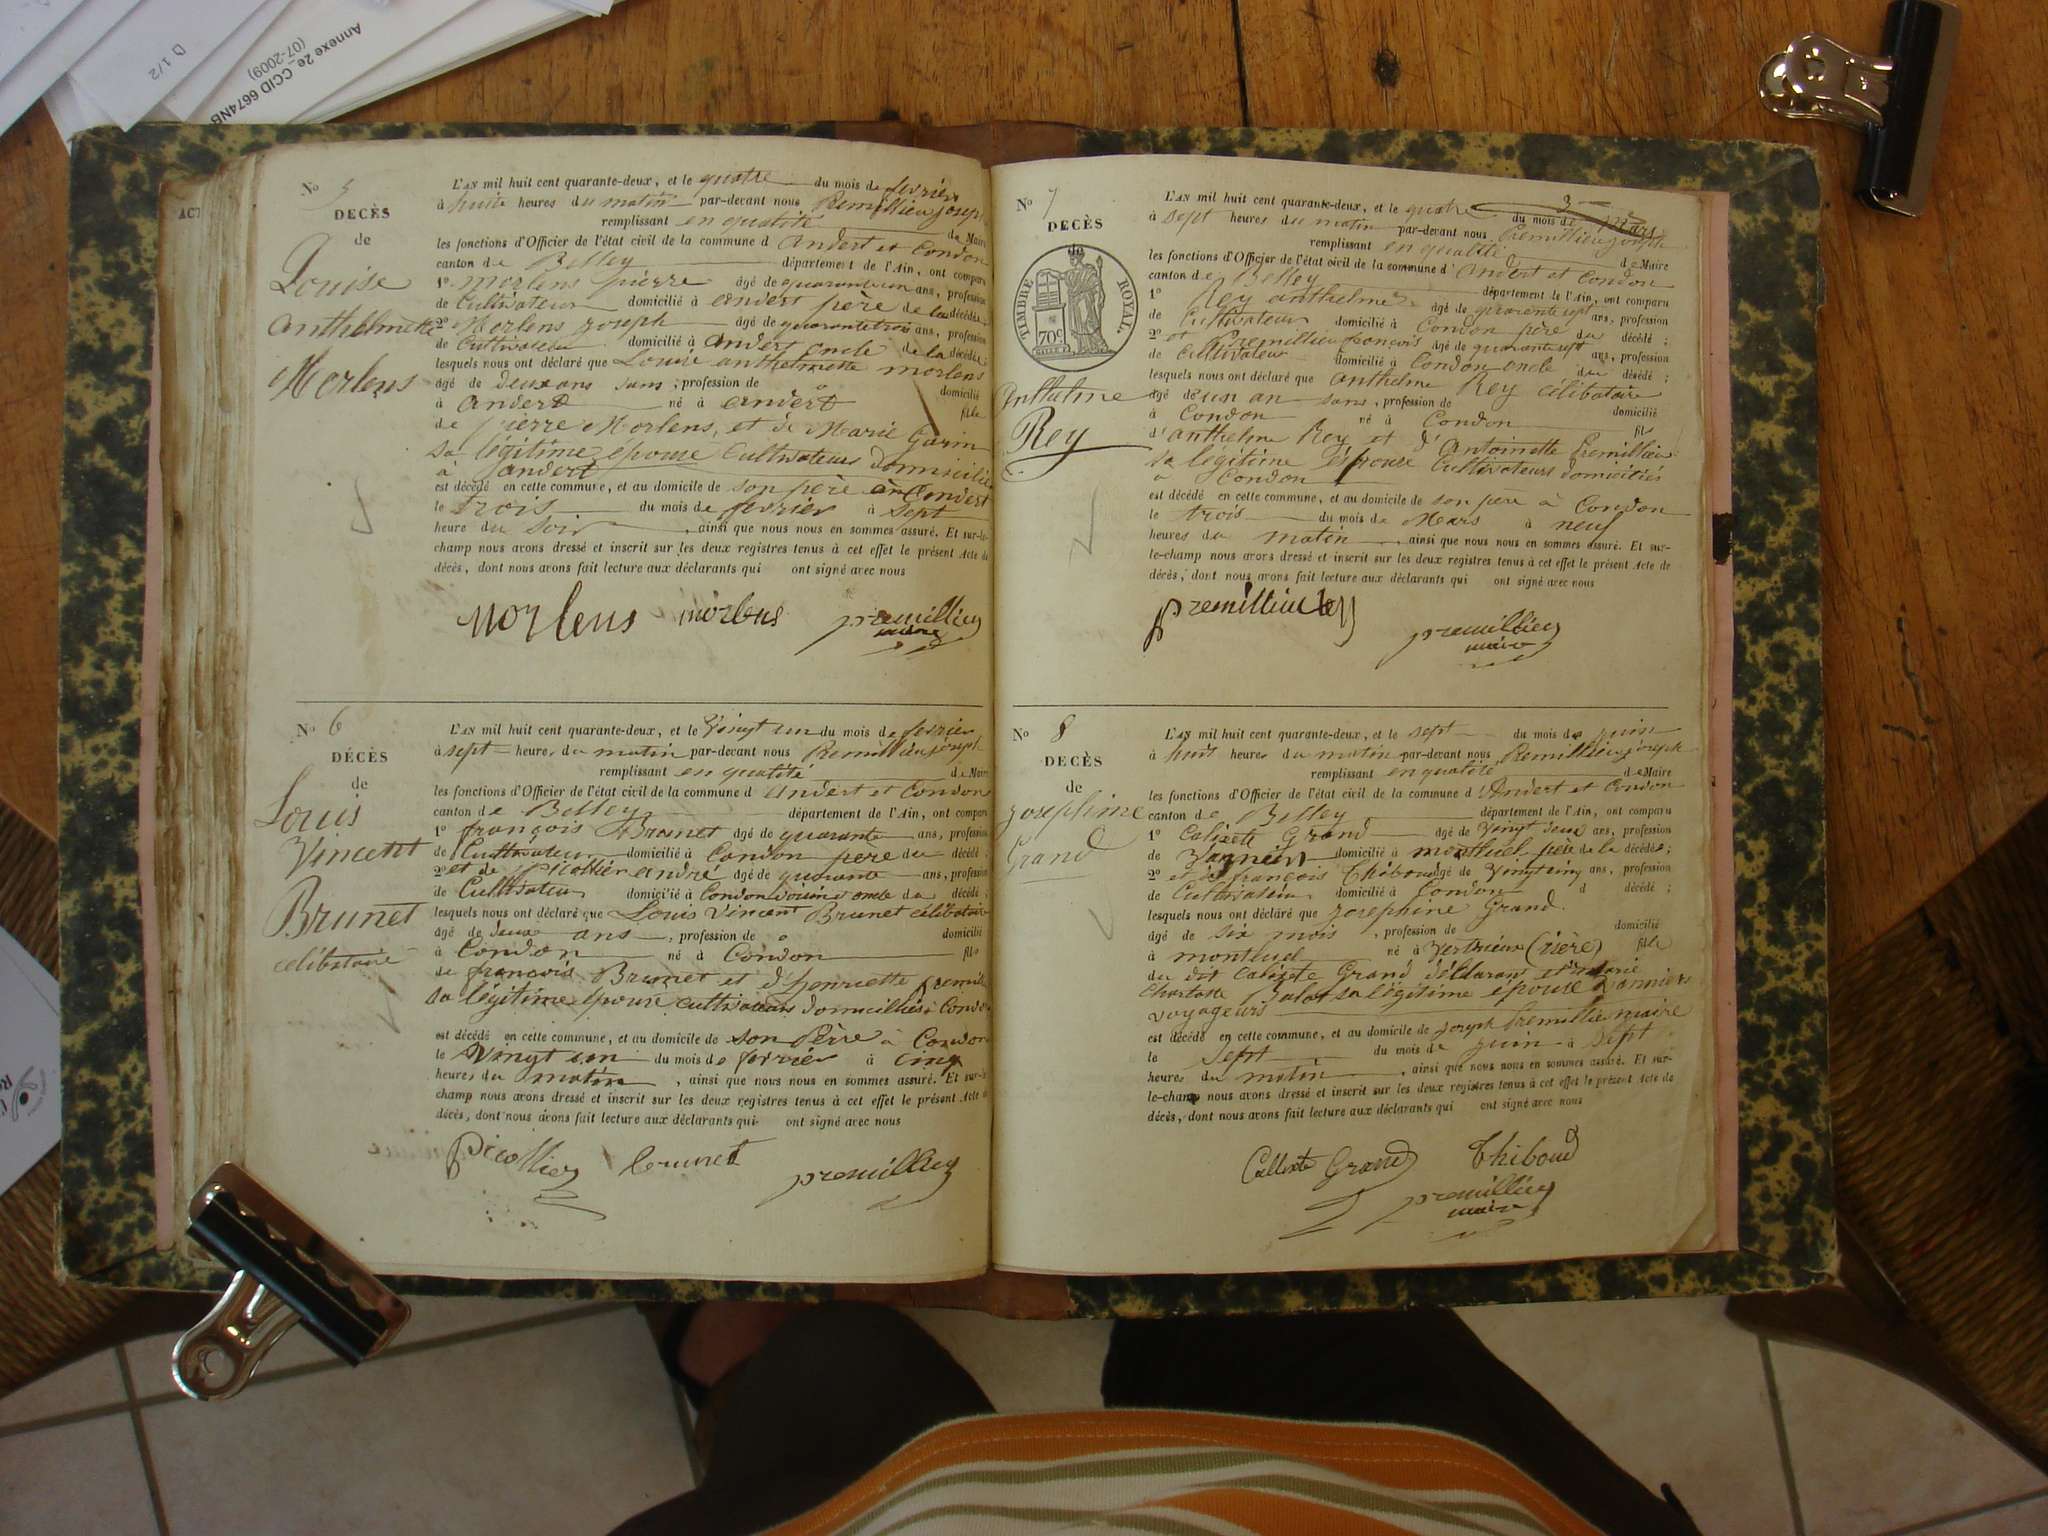 Annexe 2e CCID 6674NB
(07-2009)
D 1/2
ACT
No 5
DECÈS
de
Louise
Anthelmette
Morlens
L'AN mil huit cent quarante-deux, et le quatre du mois de fevrier
à huit heures du matin par-devant nous Premillieu joseph
remplissant en qualité de Maire
les fonctions d'Officier de l'état civil de la commune d'Andert et Condon
canton de Belley département de l'Ain, ont comparu
1° Morlens pierre âgé de quarante un ans, profession
de Cultivateur domicilié à Andert père de la décédée;
2° Morlens joseph âgé de quarante trois ans, profession
de Cultivateur domicilié à Andert oncle de la décédée;
lesquels nous ont déclaré que Louise anthelmette morlens
âgé de deux ans sans; profession de domicilié
à Andert né à Andert fille
de pierre Morlens, et de Marie Garin
sa légitime épouse Cultivateurs domiciliés
à Andert
est décédé en cette commune, et au domicile de son père à Andert
le trois du mois de fevrier à sept
heure du soir, ainsi que nous nous en sommes assuré. Et sur-le-
champ nous avons dressé et inscrit sur les deux registres tenus à cet effet le présent Acte de
décès, dont nous avons fait lecture aux déclarants qui ont signé avec nous
morlens morlens premillieu
maire
No 6
DÉCÈS
de
Louis
Vincent
Brunet
célibataire
L'AN mil huit cent quarante-deux, et le Vingt un du mois de fevrier
à sept heures du matin par-devant nous Premillieu joseph
remplissant en qualité de Maire
les fonctions d'Officier de l'état civil de la commune d'Andert et Condon
canton de Belley département de l'Ain, ont comparu
1° françois Brunet âgé de quarante ans, profession
de Cultivateur domicilié à Condon père du décédé;
2° et de Picollier andré âgé de quarante ans, profession
de Cultivateur domicilié à Condon voisin oncle du décédé;
lesquels nous ont déclaré que Louis Vincent Brunet célibataire
âgé de deux ans; profession de domicilié
à Condon né à Condon fils
de françois Brunet et d'henriette
sa légitime épouse cultivateurs domiciliés à Condon
est décédé en cette commune, et au domicile de son Père à Condon
le Vingt un du mois de fevrier à cinq
heures du matin, ainsi que nous nous en sommes assuré. Et sur-le-
champ nous avons dressé et inscrit sur les deux registres tenus à cet effet le présent Acte de
décès, dont nous avons fait lecture aux déclarants qui ont signé avec nous
picollier brunet premillieu
No 7
DÉCÈS
de
TIMBRE ROYAL.
70c
Anthelme
Rey
L'AN mil huit cent quarante-deux, et le quatre du mois de Mars
à sept heures du matin par-devant nous Premillieu joseph
remplissant en qualité de Maire
les fonctions d'Officier de l'état civil de la commune d'Andert et Condon
canton de Belley département de l'Ain, ont comparu
1° Rey anthelme âgé de quarente sept ans, profession
de Cultivateur domicilié à Condon père du décédé;
2° et Premillieu françois âgé de quarante sept ans, profession
de Cultivateur domicilié à Condon oncle du décédé;
lesquels nous ont déclaré que anthelme Rey célibataire
âgé de un an sans, profession de domicilié
à Condon né à Condon fils
d'anthelme Rey et d'Antoinette Premillieu
sa légitime épouse Cultivateurs domiciliés
à Condon
est décédé en cette commune, et au domicile de son père à Condon
le trois du mois de Mars à neuf
heures du matin, ainsi que nous nous en sommes assuré. Et sur-
le-champ nous avons dressé et inscrit sur les deux registres tenus à cet effet le présent Acte de
décès, dont nous avons fait lecture aux déclarants qui ont signé avec nous
premillieu rey
premillieu
maire
No 8
DÉCÈS
de
josephine
Grand
L'AN mil huit cent quarante-deux, et le sept du mois de juin
à huit heures du matin par-devant nous Premillieu joseph
remplissant en qualité de Maire
les fonctions d'Officier de l'état civil de la commune d'Andert et Condon
canton de Belley département de l'Ain, ont comparu
1° Calixte Grand âgé de Vingt deux ans, profession
de Vannier domicilié à montluel père de la décédée;
2° et de françois Thiboud âgé de Vingt cinq ans, profession
de Cultivateur domicilié à Condon d décédé;
lesquels nous ont déclaré que josephine Grand
âgé de six mois, profession de domicilié
à montluel né à Vertrieux (isère) fille
du dit Calixte Grand déclarant et marie
Charlotte sa légitime épouse Vanniers
voyageurs
est décédé en cette commune, et au domicile de joseph Premillieu maire
le sept du mois de juin à sept
heures du matin, ainsi que nous nous en sommes assuré. Et sur-
le-champ nous avons dressé et inscrit sur les deux registres tenus à cet effet le présent Acte de
décès, dont nous avons fait lecture aux déclarants qui ont signé avec nous
Callixte Grand Thiboud
premillieu
maire